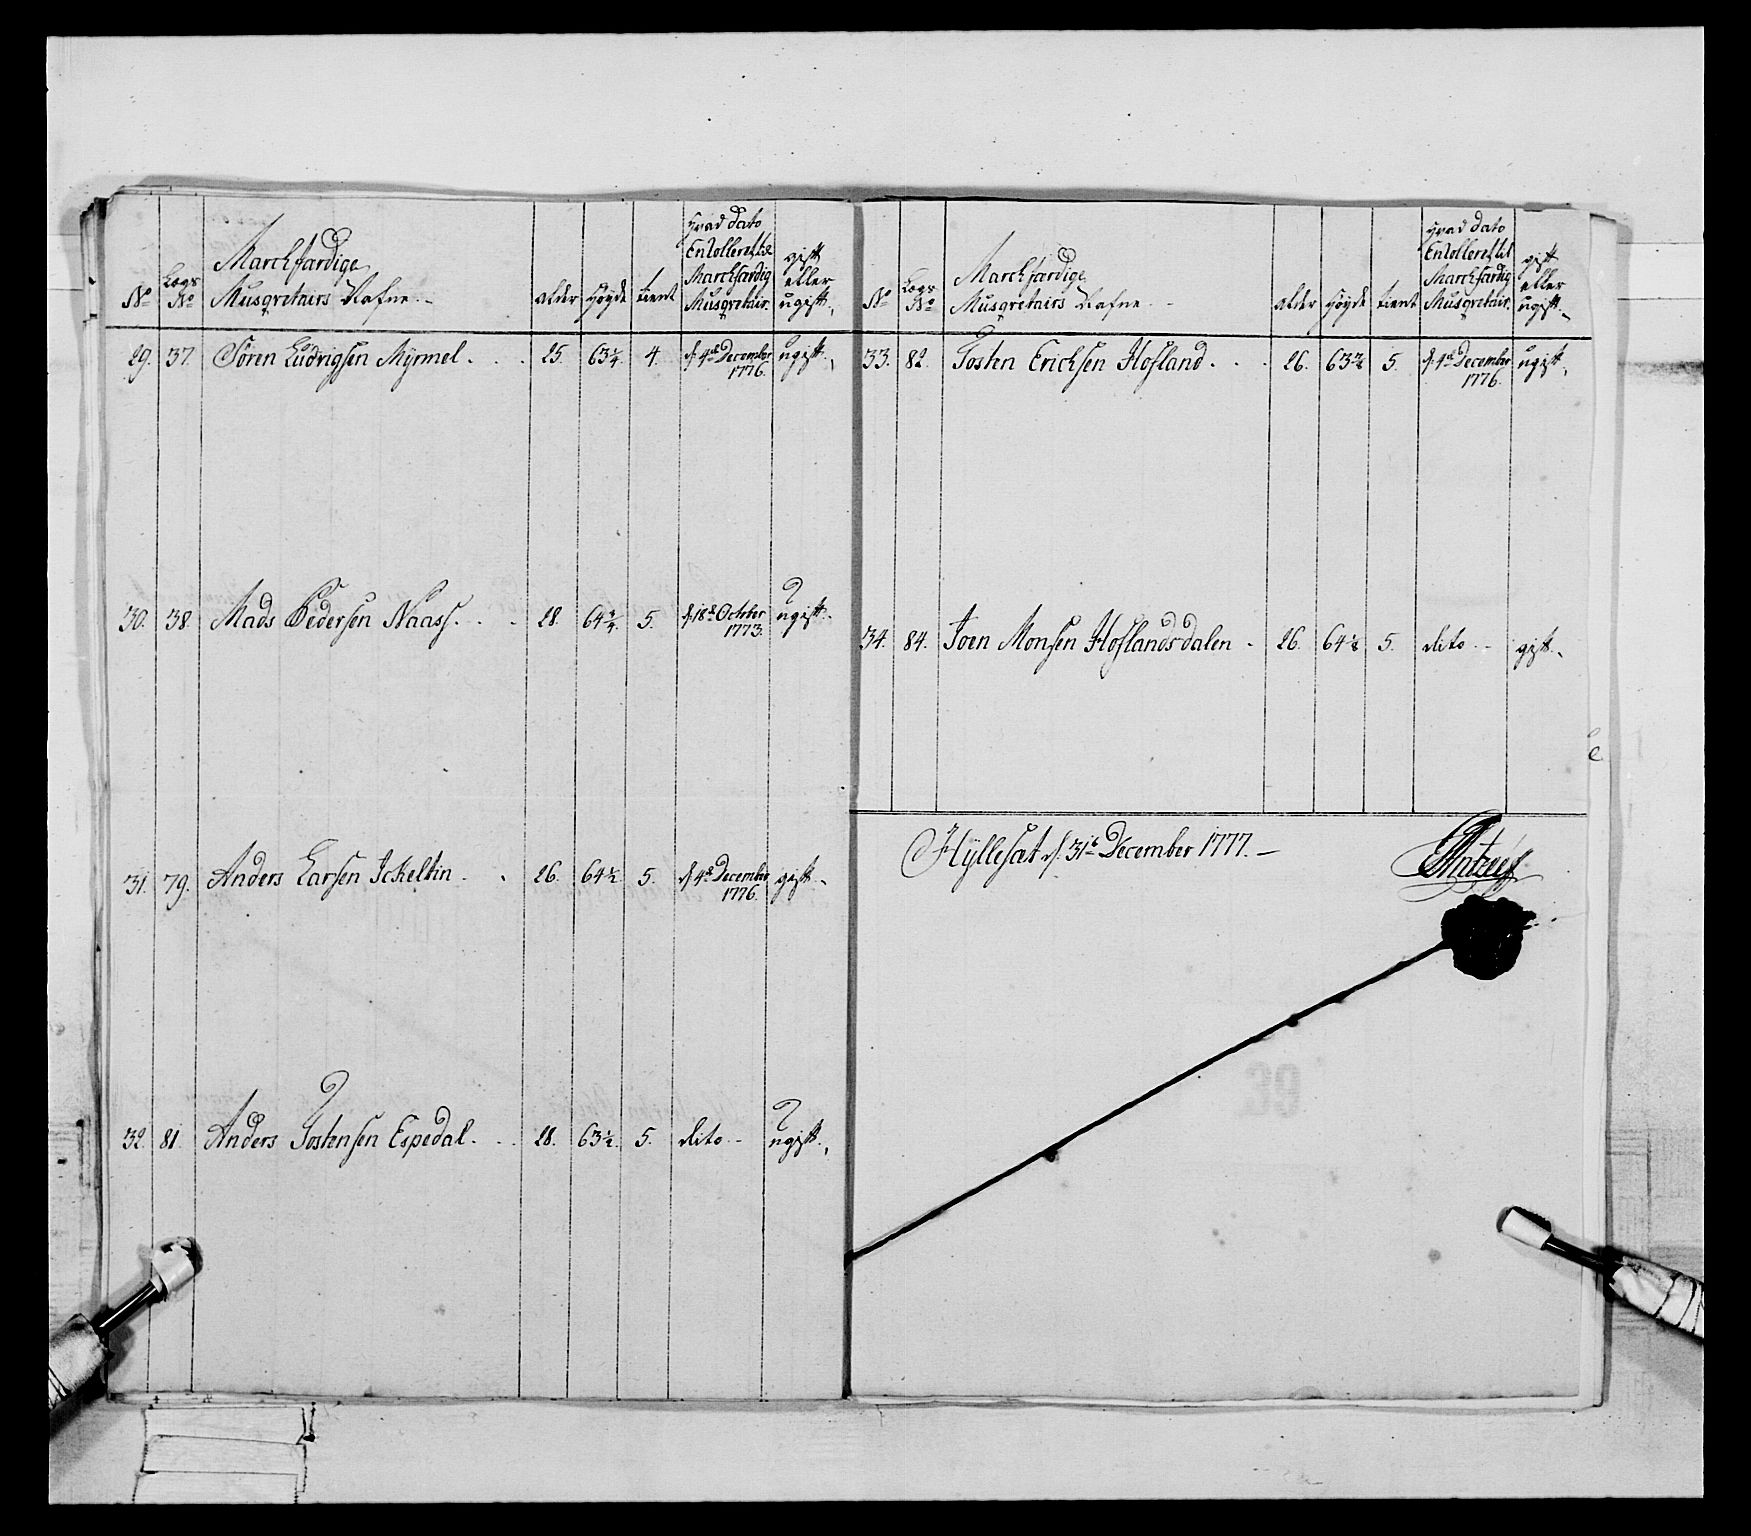 No
Lægs No
Marchfærdige
Musqvetairs Nafne
alder
høyde
tient
hvad Dato
Enrolleret til
Marchfærdig
Musqvetair.
gift
eller
ugift.
29. 37. Sören Ludvigsen Mÿrmel. 25. 63 1/4. 4. d. 4de December 1776. ugift.
30. 38. Mads Pedersen Naass. 28. 64 3/4. 5. d. 18de October 1773. ugift.
31. 79. Anders Larsen Ickeltin. 26. 64 1/2. 5. d. 4de December 1776. gift.
32. 81. Anders Tostensen Espedal. 28. 63 1/2. 5. dito ugift.
No
Lægs No
Marchfærdige
Musqvetairs Nafne
alder
høyde
tient
hvad Dato
Enrolleret til
Marchfærdig
Musqvetair.
gift
eller
ugift.
33. 82. Tosten Ericksen Hofland. 26. 63 5. d. 4de December 1776. ugift.
34. 84. Joen Monsen Hoflandsdalen 26. 64 1/2 5. dito gift.
Hÿllesæt d. 31te December 1777.